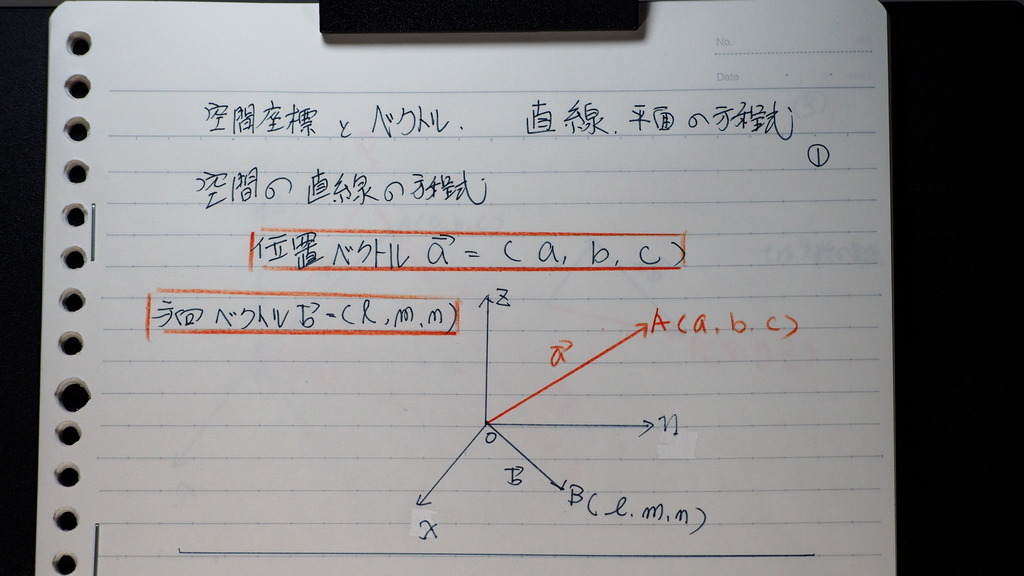 No.
Date
空間座標とベクトル. 直線.平面の方程式
①
空間の直線の方程式
位置ベクトル a⃗ = (a, b, c)
方向ベクトル b⃗ = (l, m, n)
z
A(a, b. c)
a⃗
o
b⃗
B(l. m, n)
x